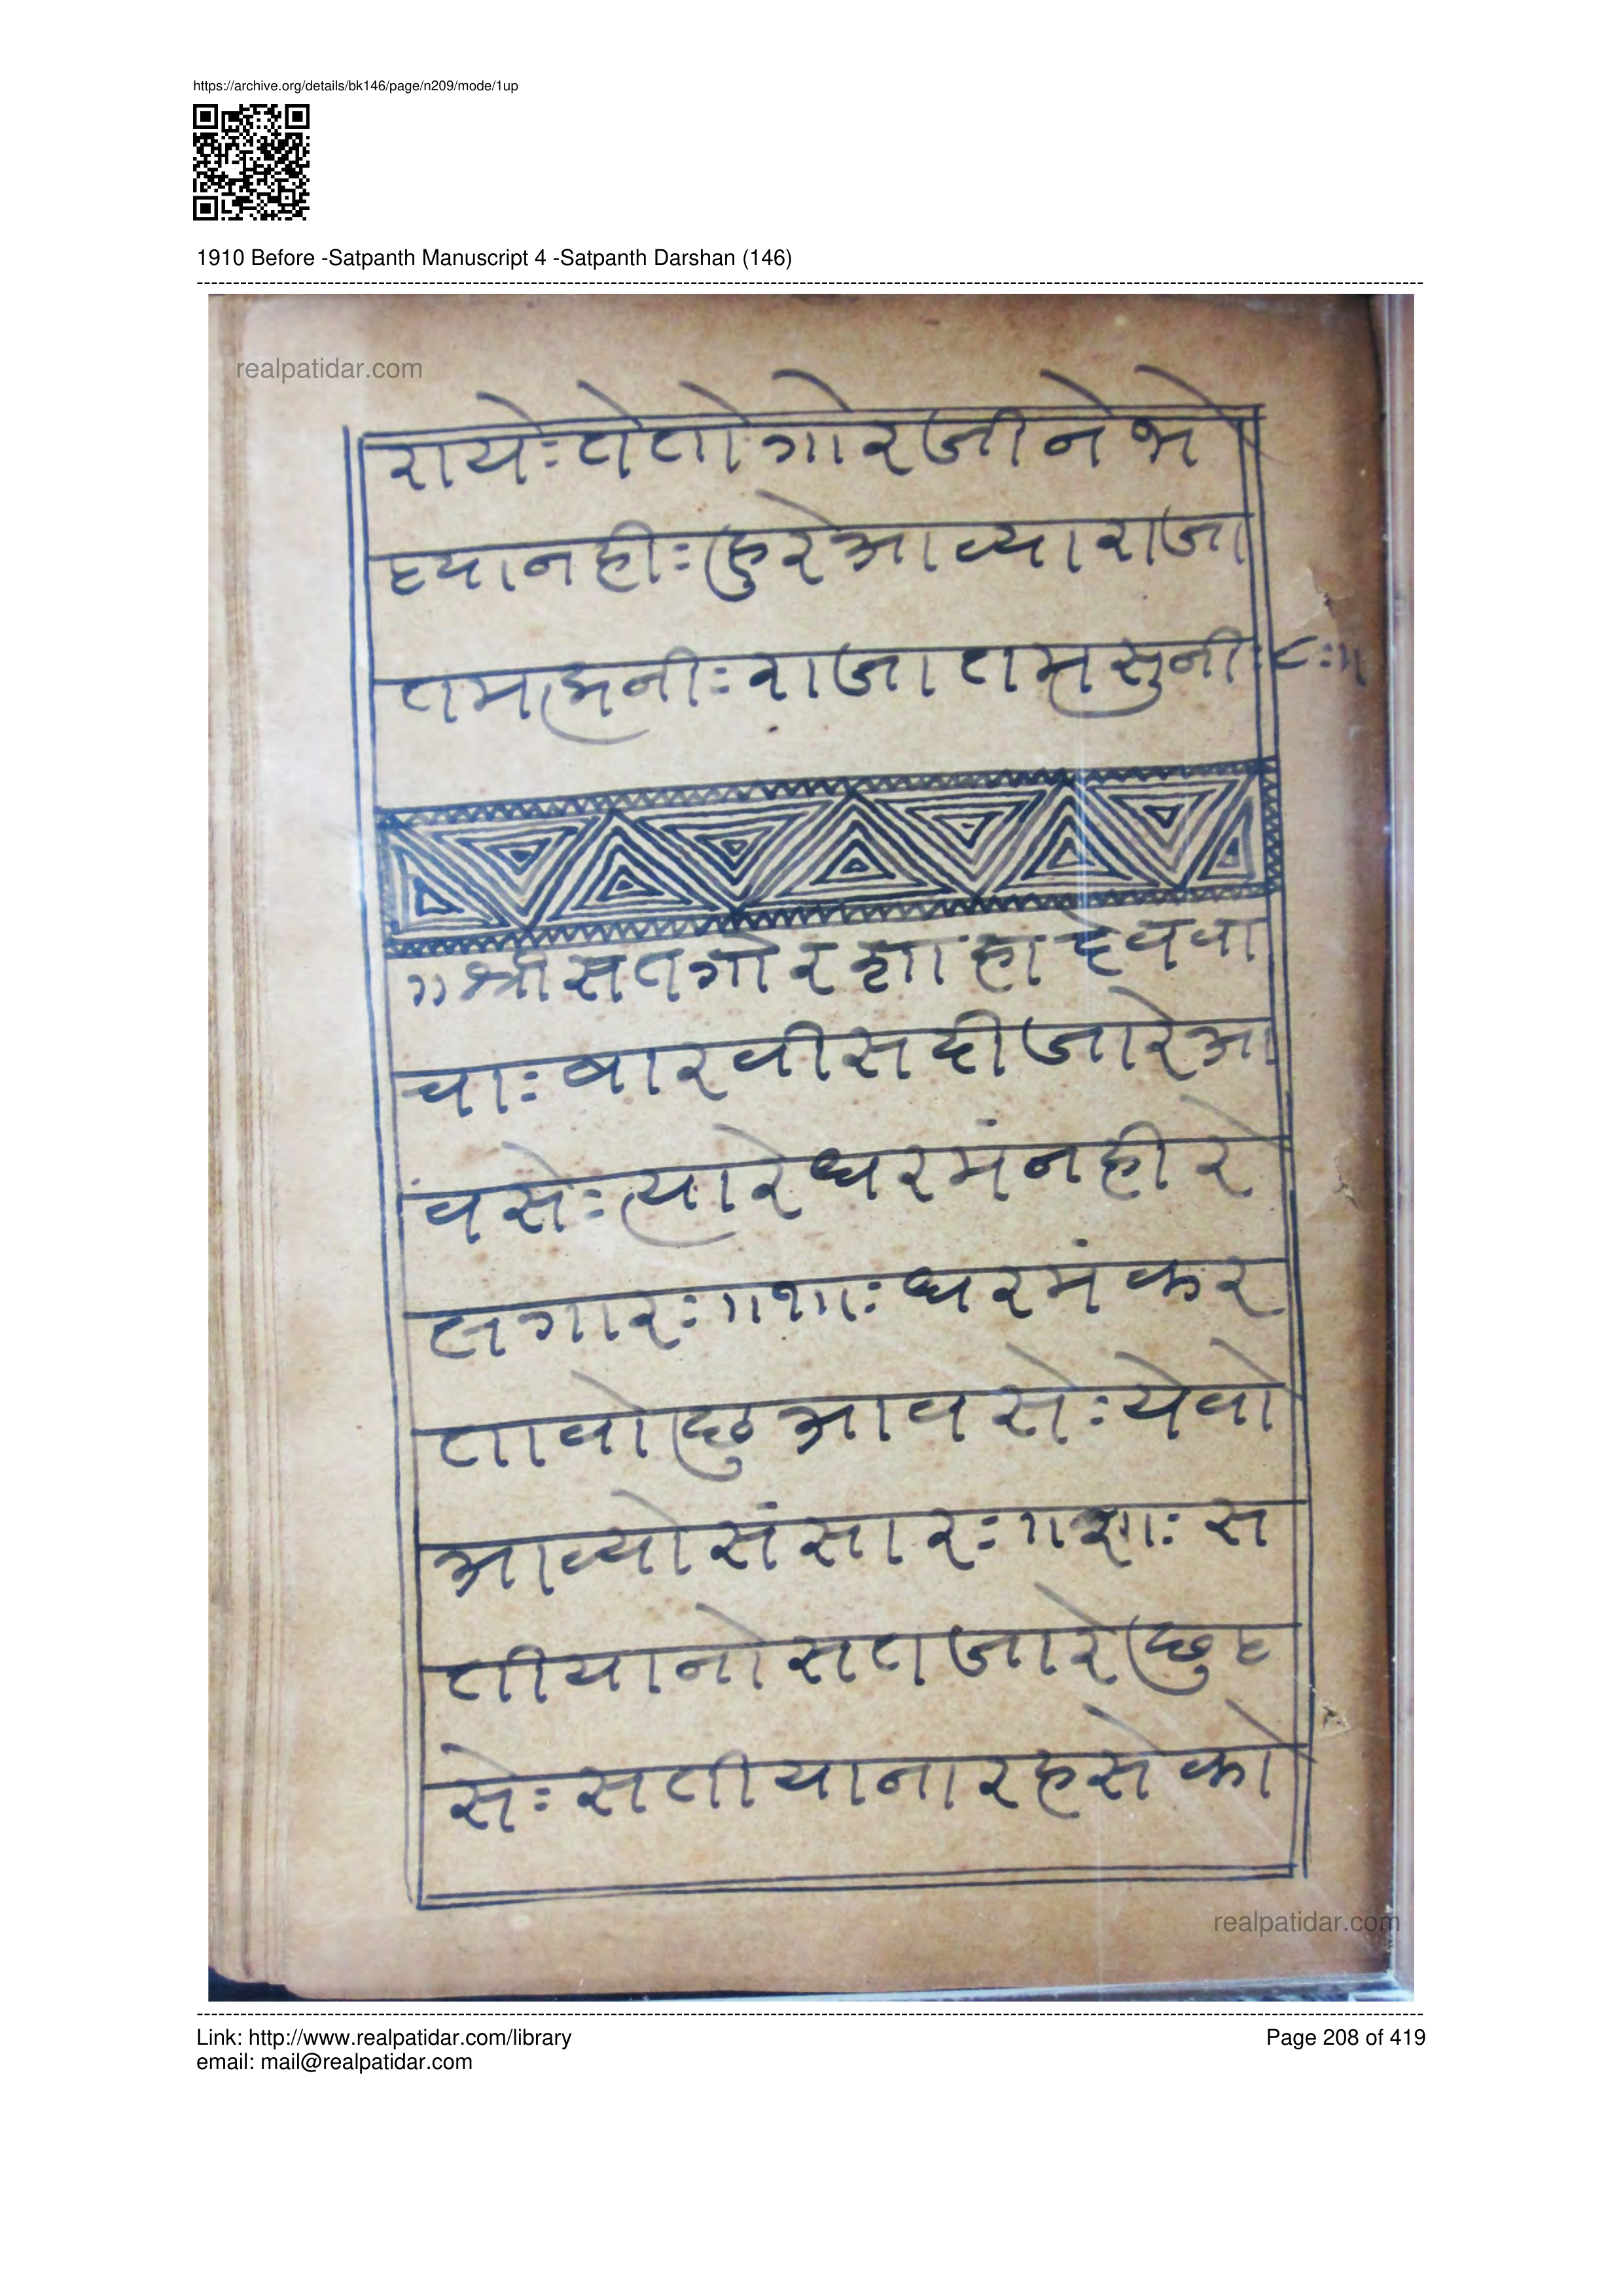 https://archive.org/details/bk146/page/n209/mode/1up
1910 Before -Satpanth Manuscript 4 -Satpanth Darshan (146)
realpatidar.com
रायेः तेतो गोरजीने भे
ट्यानहीः हुरे आव्या राजा
तम भनीः राजा तम सुनीः ८ः॥
॥ श्री सतगोर शाहा देववा
चाः बारवीस दी जारे आ
वसेः त्यारे धरमं नही रे
लगारः ॥१॥ः धरमं कर
तावो छु आवसेः येवो
आव्यो संसारः ॥२॥ः स
तीयानो सत जारे छु ट
सेः सतीयाना रहसे को
realpatidar.com
Link: http://www.realpatidar.com/library
Page 208 of 419
email: mail@realpatidar.com